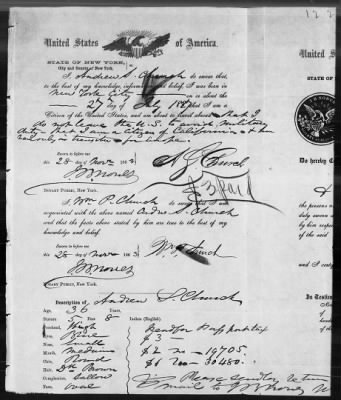 United States of America.
STATE OF NEW YORK,
City and County of New York.
I, Andrew S. Church do swear that,
to the best of my knowledge, information and belief, I was born in
New York City on or about the
27 day of July that I am a
Citizen of the United States, and am about to travel abroad that I
do not leave the U.S. to avoid military
duty that I am a citizen of California
only in transitu for Europe.
Sworn to before me
this 28 day of Nov 1863
A S Church
J B Nones
NOTARY PUBLIC, New York.
I, Wm P. Church do swear that I am
acquainted with the above named Andrew S. Church
and that the facts above stated by him are true to the best of my
knowledge and belief.
Sworn to before me
this 28 day of Nov 1863
Wm P. Church
J B Nones
NOTARY PUBLIC, New York.
Description of Andrew S. Church
Age, 36 Years
Stature, 5 Feet 8 Inches (English)
Forehead, High
Eyes, Blue
Nose, Small
Mouth, Medium
Chin, Round
Hair, Dk Brown
Complexion, Sallow
Face, Oval
$3
19705
30480
Please
mail to J B Nones
122
United States
STATE OF NEW YORK
Do hereby C
the persons
duly sworn
sworn by him
of the said
and I certify
In Testim